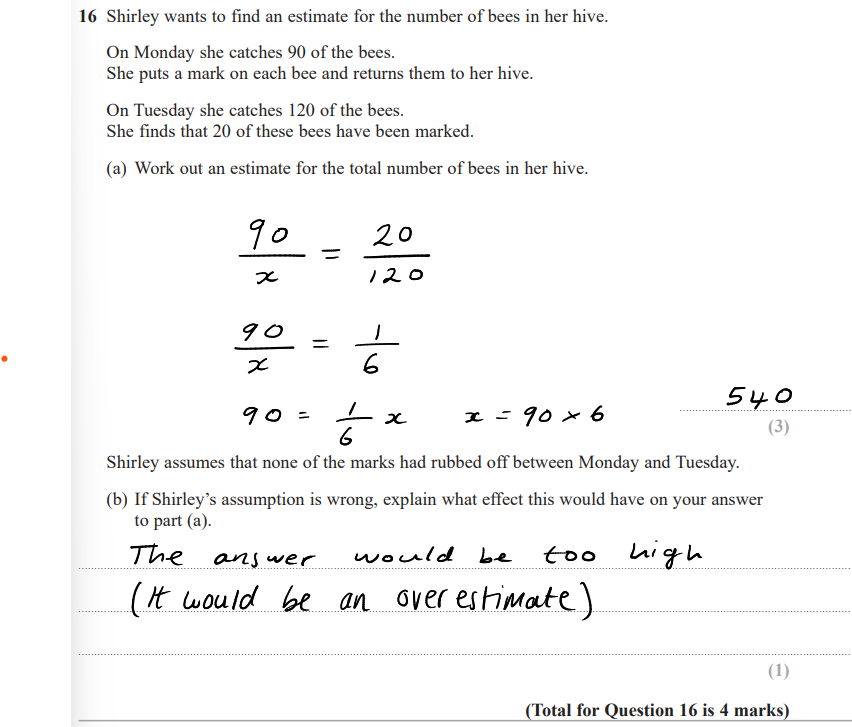 16 Shirley wants to find an estimate for the number of bees in her hive.
On Monday she catches 90 of the bees.
She puts a mark on each bee and returns them to her hive.
On Tuesday she catches 120 of the bees.
She finds that 20 of these bees have been marked.
(a) Work out an estimate for the total number of bees in her hive.
90/x = 20/120
90/x = 1/6
90 = 1/6 x    x = 90 × 6
540
(3)
Shirley assumes that none of the marks had rubbed off between Monday and Tuesday.
(b) If Shirley's assumption is wrong, explain what effect this would have on your answer
to part (a).
The answer would be too high
(It would be an overestimate)
(1)
(Total for Question 16 is 4 marks)